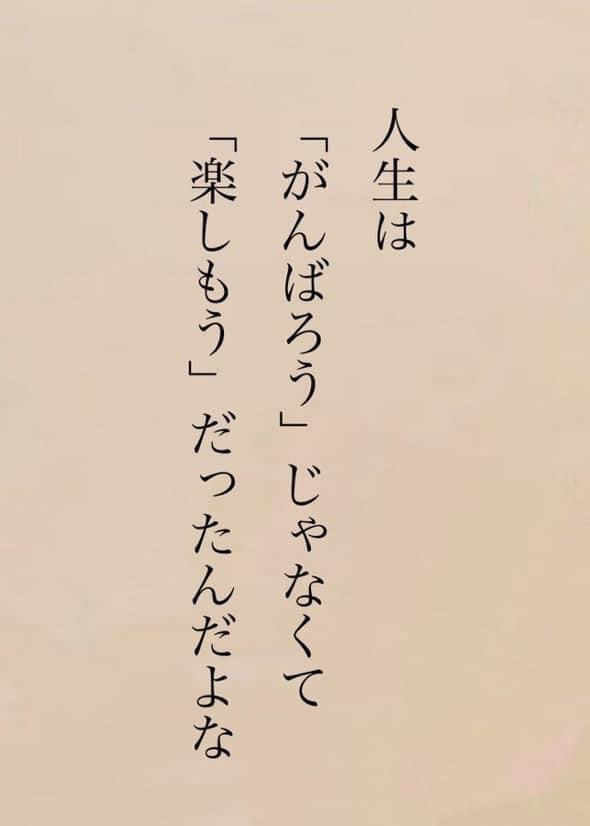 人生は
「がんばろう」じゃなくて
「楽しもう」だったんだよな